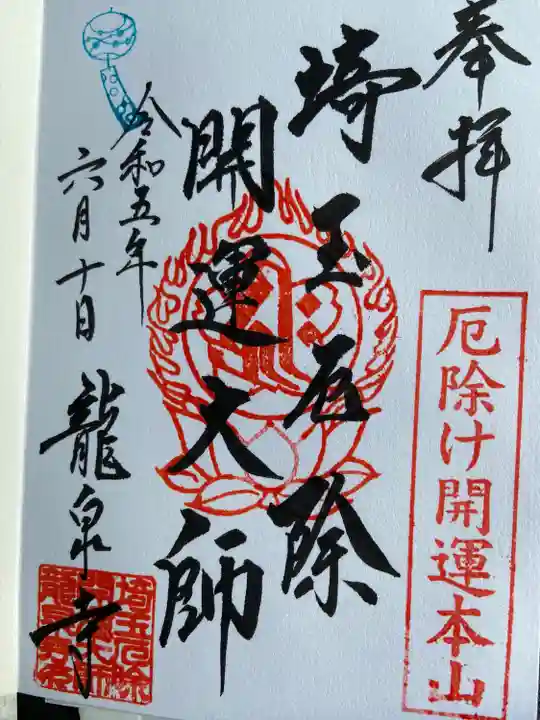 奉拝
厄除け開運本山
埼玉厄除
開運大師
令和五年
六月十日
龍泉寺